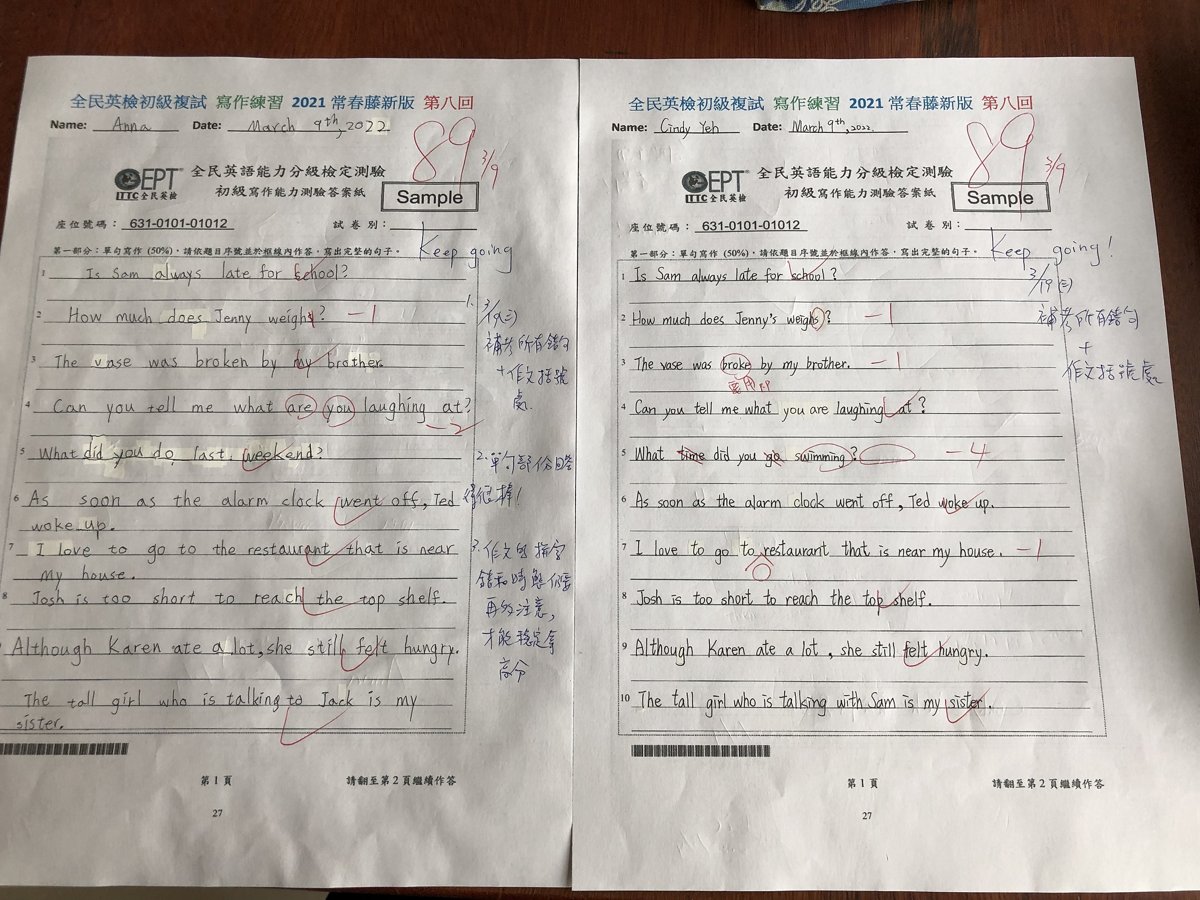 全民英檢初級複試 寫作練習 2021 常春藤新版 第八回
Name: Anna Date: March 9th, 2022
89 3/9
GEPT 全民英語能力分級檢定測驗
LTTC 全民英檢 初級寫作能力測驗答案紙
Sample
座位號碼： 631-0101-01012 試卷別：
Keep going
第一部分：單句寫作 (50%)，請依題目序號並於框線內作答，寫出完整的句子。
1 Is Sam always late for school?
2 How much does Jenny weigh? -1
3 The vase was broken by my brother.
4 Can you tell me what are you laughing at?
-2
5 What did you do last weekend?
6 As soon as the alarm clock went off, Ted
woke up.
7 I love to go to the restaurant that is near
my house.
8 Josh is too short to reach the top shelf.
Although Karen ate a lot, she still felt hungry.
The tall girl who is talking to Jack is my
sister.
1.
補考所有錯句
+作文括號
處.
2. 單句部份
很棒!
3. 作文的拼字
錯和時態仍要
再多注意,
才能穩定拿
高分
第 1 頁 請翻至第 2 頁繼續作答
27
全民英檢初級複試 寫作練習 2021 常春藤新版 第八回
Name: Cindy Yeh Date: March 9th, 2022.
89 3/9
GEPT 全民英語能力分級檢定測驗
LTTC 全民英檢 初級寫作能力測驗答案紙
Sample
座位號碼： 631-0101-01012 試卷別：
Keep going!
第一部分：單句寫作 (50%)，請依題目序號並於框線內作答，寫出完整的句子。
1 Is Sam always late for school?
2 How much does Jenny's weighs? -1
3 The vase was broke by my brother. -1
要用P.P
4 Can you tell me what you are laughing at?
5 What time did you go swimming? -4
6 As soon as the alarm clock went off, Ted woke up.
7 I love to go to restaurant that is near my house. -1
8 Josh is too short to reach the top shelf.
9 Although Karen ate a lot, she still felt hungry.
10 The tall girl who is talking with Sam is my sister.
補考所有錯句
+
作文括號處
第 1 頁 請翻至第 2 頁繼續作答
27